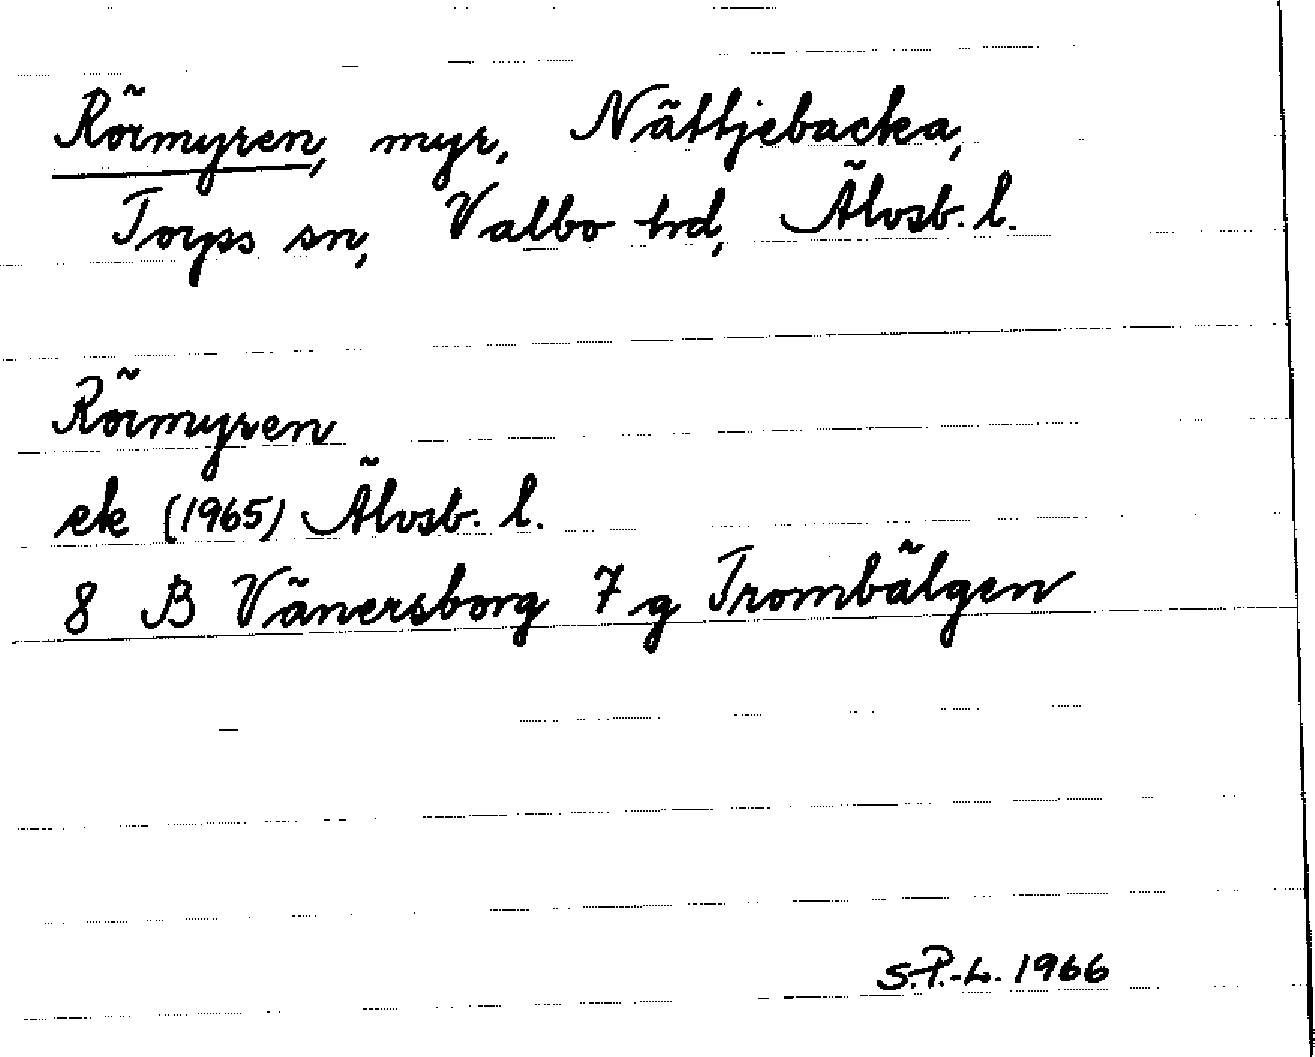 Rörmyren, myr, Nättjebacka,
Torps sn, Valbo hd, Älvsb. l.
Rörmyren
ek (1965) Älvsb. l.
8 B Vänersborg 7 g Trombälgen
S.P.-L. 1966